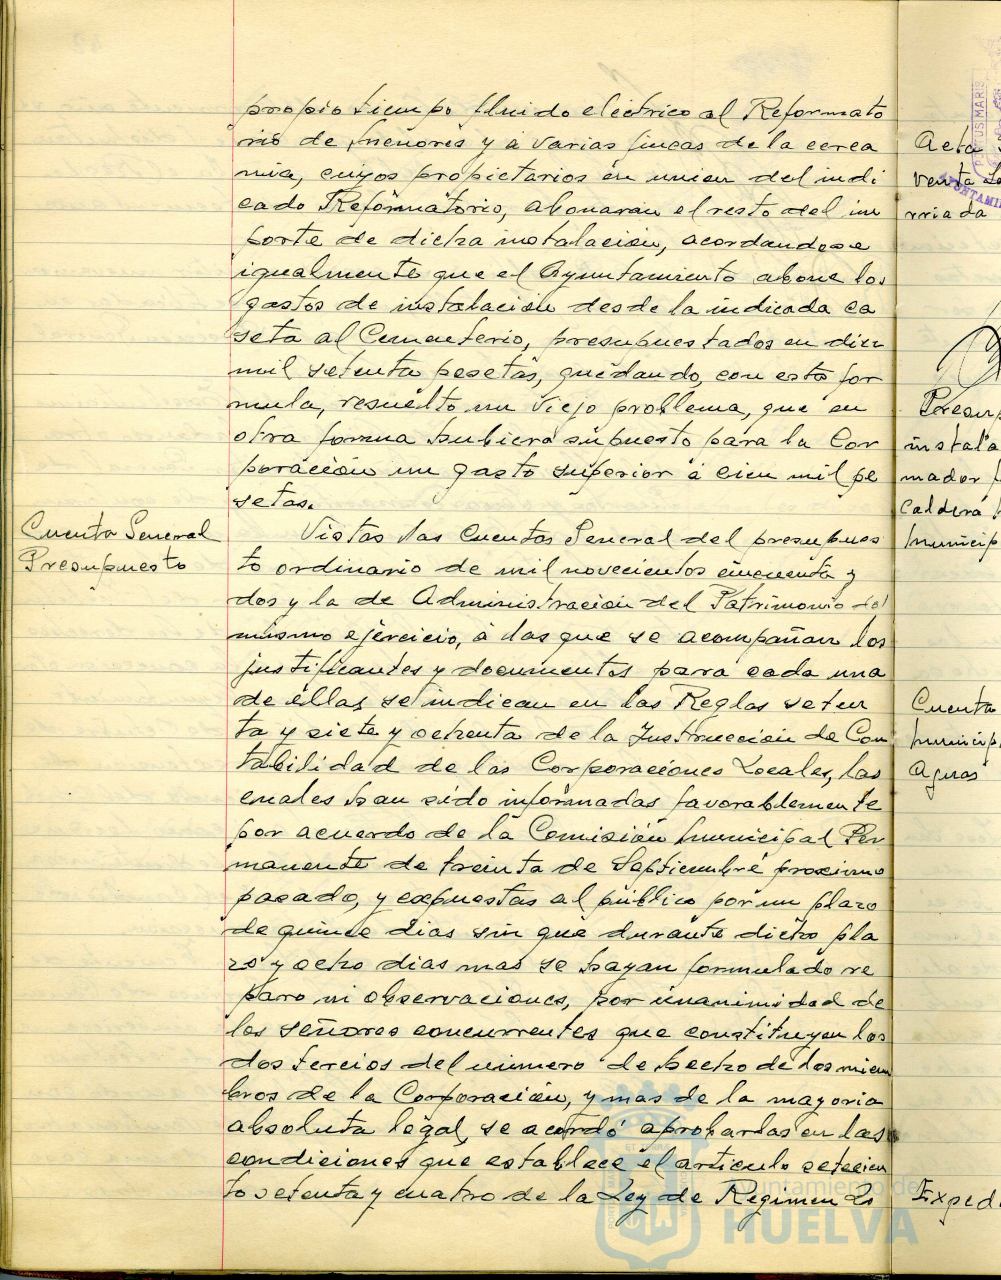 propio tiempo fluido electrico al Reformato
rio de menores y á varias fincas de la cerca
nia, cuyos propietarios en union del indi
cado Reformatorio, abonaran el resto del im
porte de dicha instalación, acordandose
igualmente que el Ayuntamiento abone los
gastos de instalación desde la indicada ca
seta al Cementerio, presupuestados en diez
mil setenta pesetas, quedando, con esta for
mula, resuelto un viejo problema, que en
otra forma hubiera supuesto para la Cor
poración un gasto superior á cien mil pe
setas.
Cuenta General
Presupuesto
Vistas las Cuentas General del presupues
to ordinario de mil novecientos cincuenta y
dos y la de Administración del Patrimonio del
mismo ejercicio, á las que se acompañan los
justificantes y documentos para cada una
de éllas se indican en las Reglas seten
ta y siete y ochenta de la Instrucción de Con
tabilidad de las Corporaciones Locales, las
cuales han sido informadas favorablemente
por acuerdo de la Comisión municipal Per
manente de treinta de Septiembre proximo
pasado, y expuestas al público por un plazo
de quince dias sin que durante dicho pla
zo y ocho dias mas se hayan formulado re
paro ni observaciones, por unanimidad de
los señores concurrentes que constituyen los
dos tercios del número de hecho de los miem
bros de la Corporación, y mas de la mayoria
absoluta legal, se acordó aprobarlas en las
condiciones que establece el articulo setecien
tos setenta y cuatro de la Ley de Regimen Lo
Acta
venta
rriada
Presup
instala
mador
caldera
municip
Cuenta
municip
Aguas
Exped
PORTUS MARIS
Ayuntamiento de
HUELVA